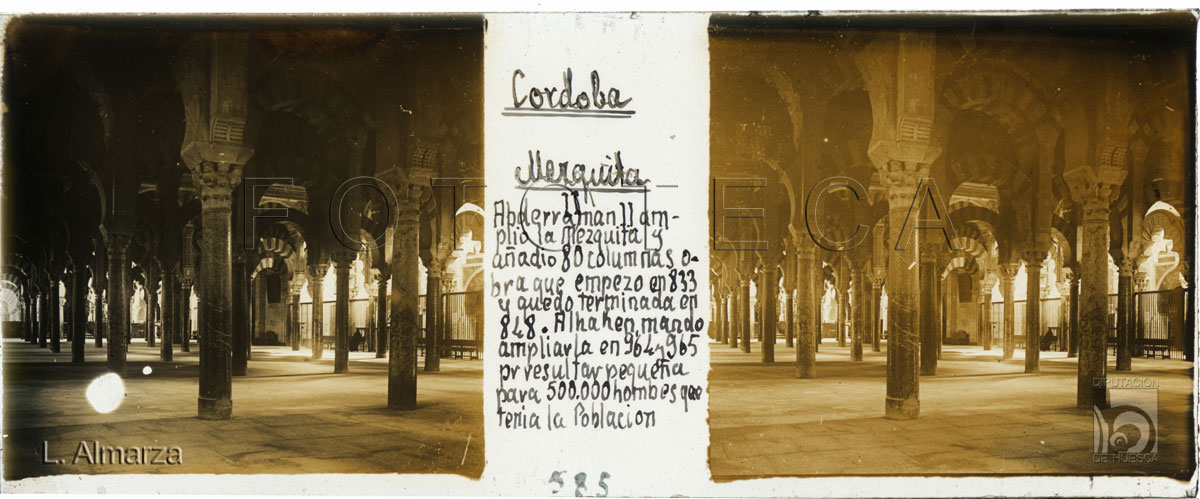 Cordoba
Mezquita
II
Abderraman II am-
plió la Mezquita y
añadio 80 columnas o-
bra que empezo en 833
y quedo terminada en
848. Alhaken mando
ampliarla en 964 y 965
pr resultar pequeña
para 500.000 hombes que
tenia la Poblacion
585
FOTOTECA
L. Almarza
DIPUTACIÓN
DE HUESCA